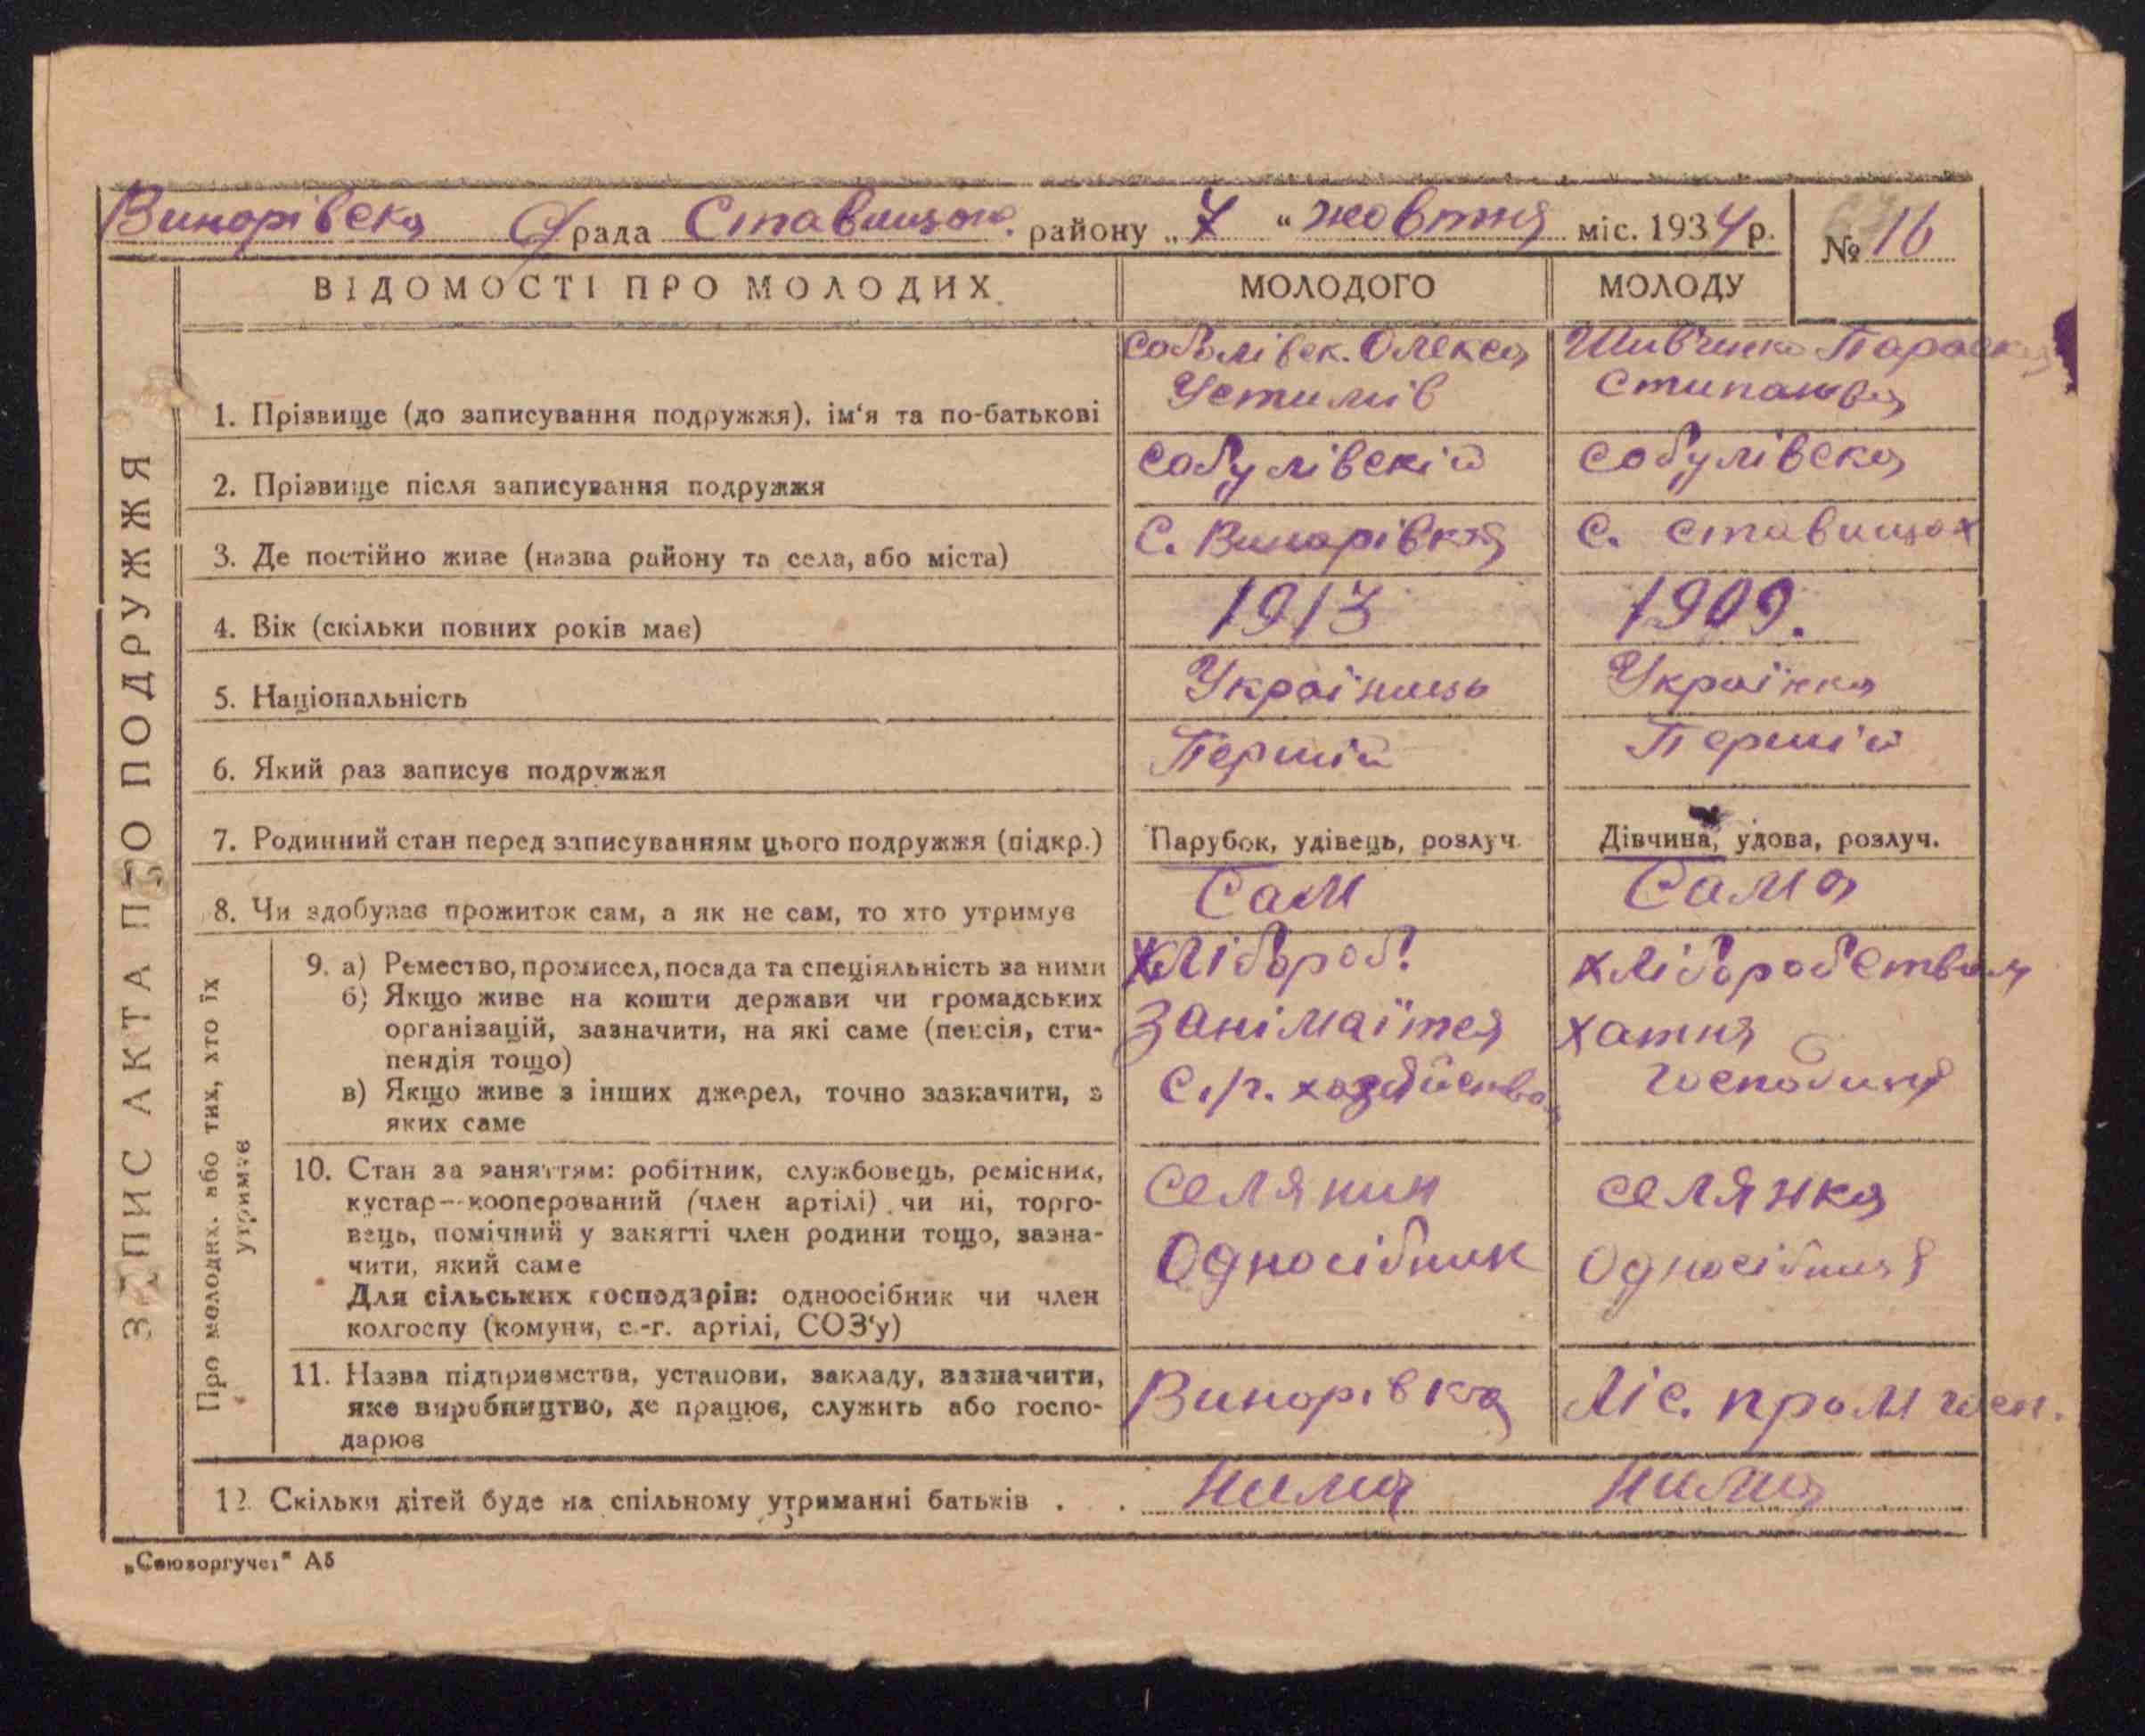 Винорівска С/рада Ставищан. району „7" жовтня міс. 1934 р. № 16
ВІДОМОСТІ ПРО МОЛОДИХ МОЛОДОГО МОЛОДУ
ЗАПИС АКТА ПРО ПОДРУЖЖЯ
1. Прізвище (до записування подружжя), ім'я та по-батькові
Соболівск. Олекса
Устимів
Шивченко Параска
Стипанівна
2. Прізвище після записування подружжя собулівскій собулівска
3. Де постійно живе (назва району та села, або міста) С. Винарівка С. Ставищах
4. Вік (скільки повних років має) 1913 1909.
5. Національність Україниць Українка
6. Який раз записує подружжя Першій Першій
7. Родинний стан перед записуванням цього подружжя (підкр.) Парубок, удівець, розлуч. Дівчина, удова, розлуч.
8. Чи здобуває прожиток сам, а як не сам, то хто утримує Сам Сама
Про молодих, або тих, хто їх
утримує
9. а) Ремество, промисел, посада та спеціяльність за ними
б) Якщо живе на кошти держави чи громадських
організацій, зазначити, на які саме (пенсія, сти-
пендія тощо)
в) Якщо живе з інших джерел, точно зазначити, з
яких саме
хлібороб.
занімаїтся
с/г. хазяйства
хліборобством
хатня
господиня
10. Стан за заняттям: робітник, службовець, ремісник,
кустар—кооперований (член артілі) чи ні, торго-
вець, помічний у занятті член родини тощо, зазна-
чити, який саме
Для сільських господарів: одноосібник чи член
колгоспу (комуни, с.-г. артілі, СОЗ'у)
селянин
Односібник
селянка
Односібниця
11. Назва підприємства, установи, закладу, зазначити,
яке виробництво, де працює, служить або госпо-
дарює
Винорівка Ліс. пром госп.
12. Скільки дітей буде на спільному утриманні батьків . . нима нима
„Союзоргучет" А5